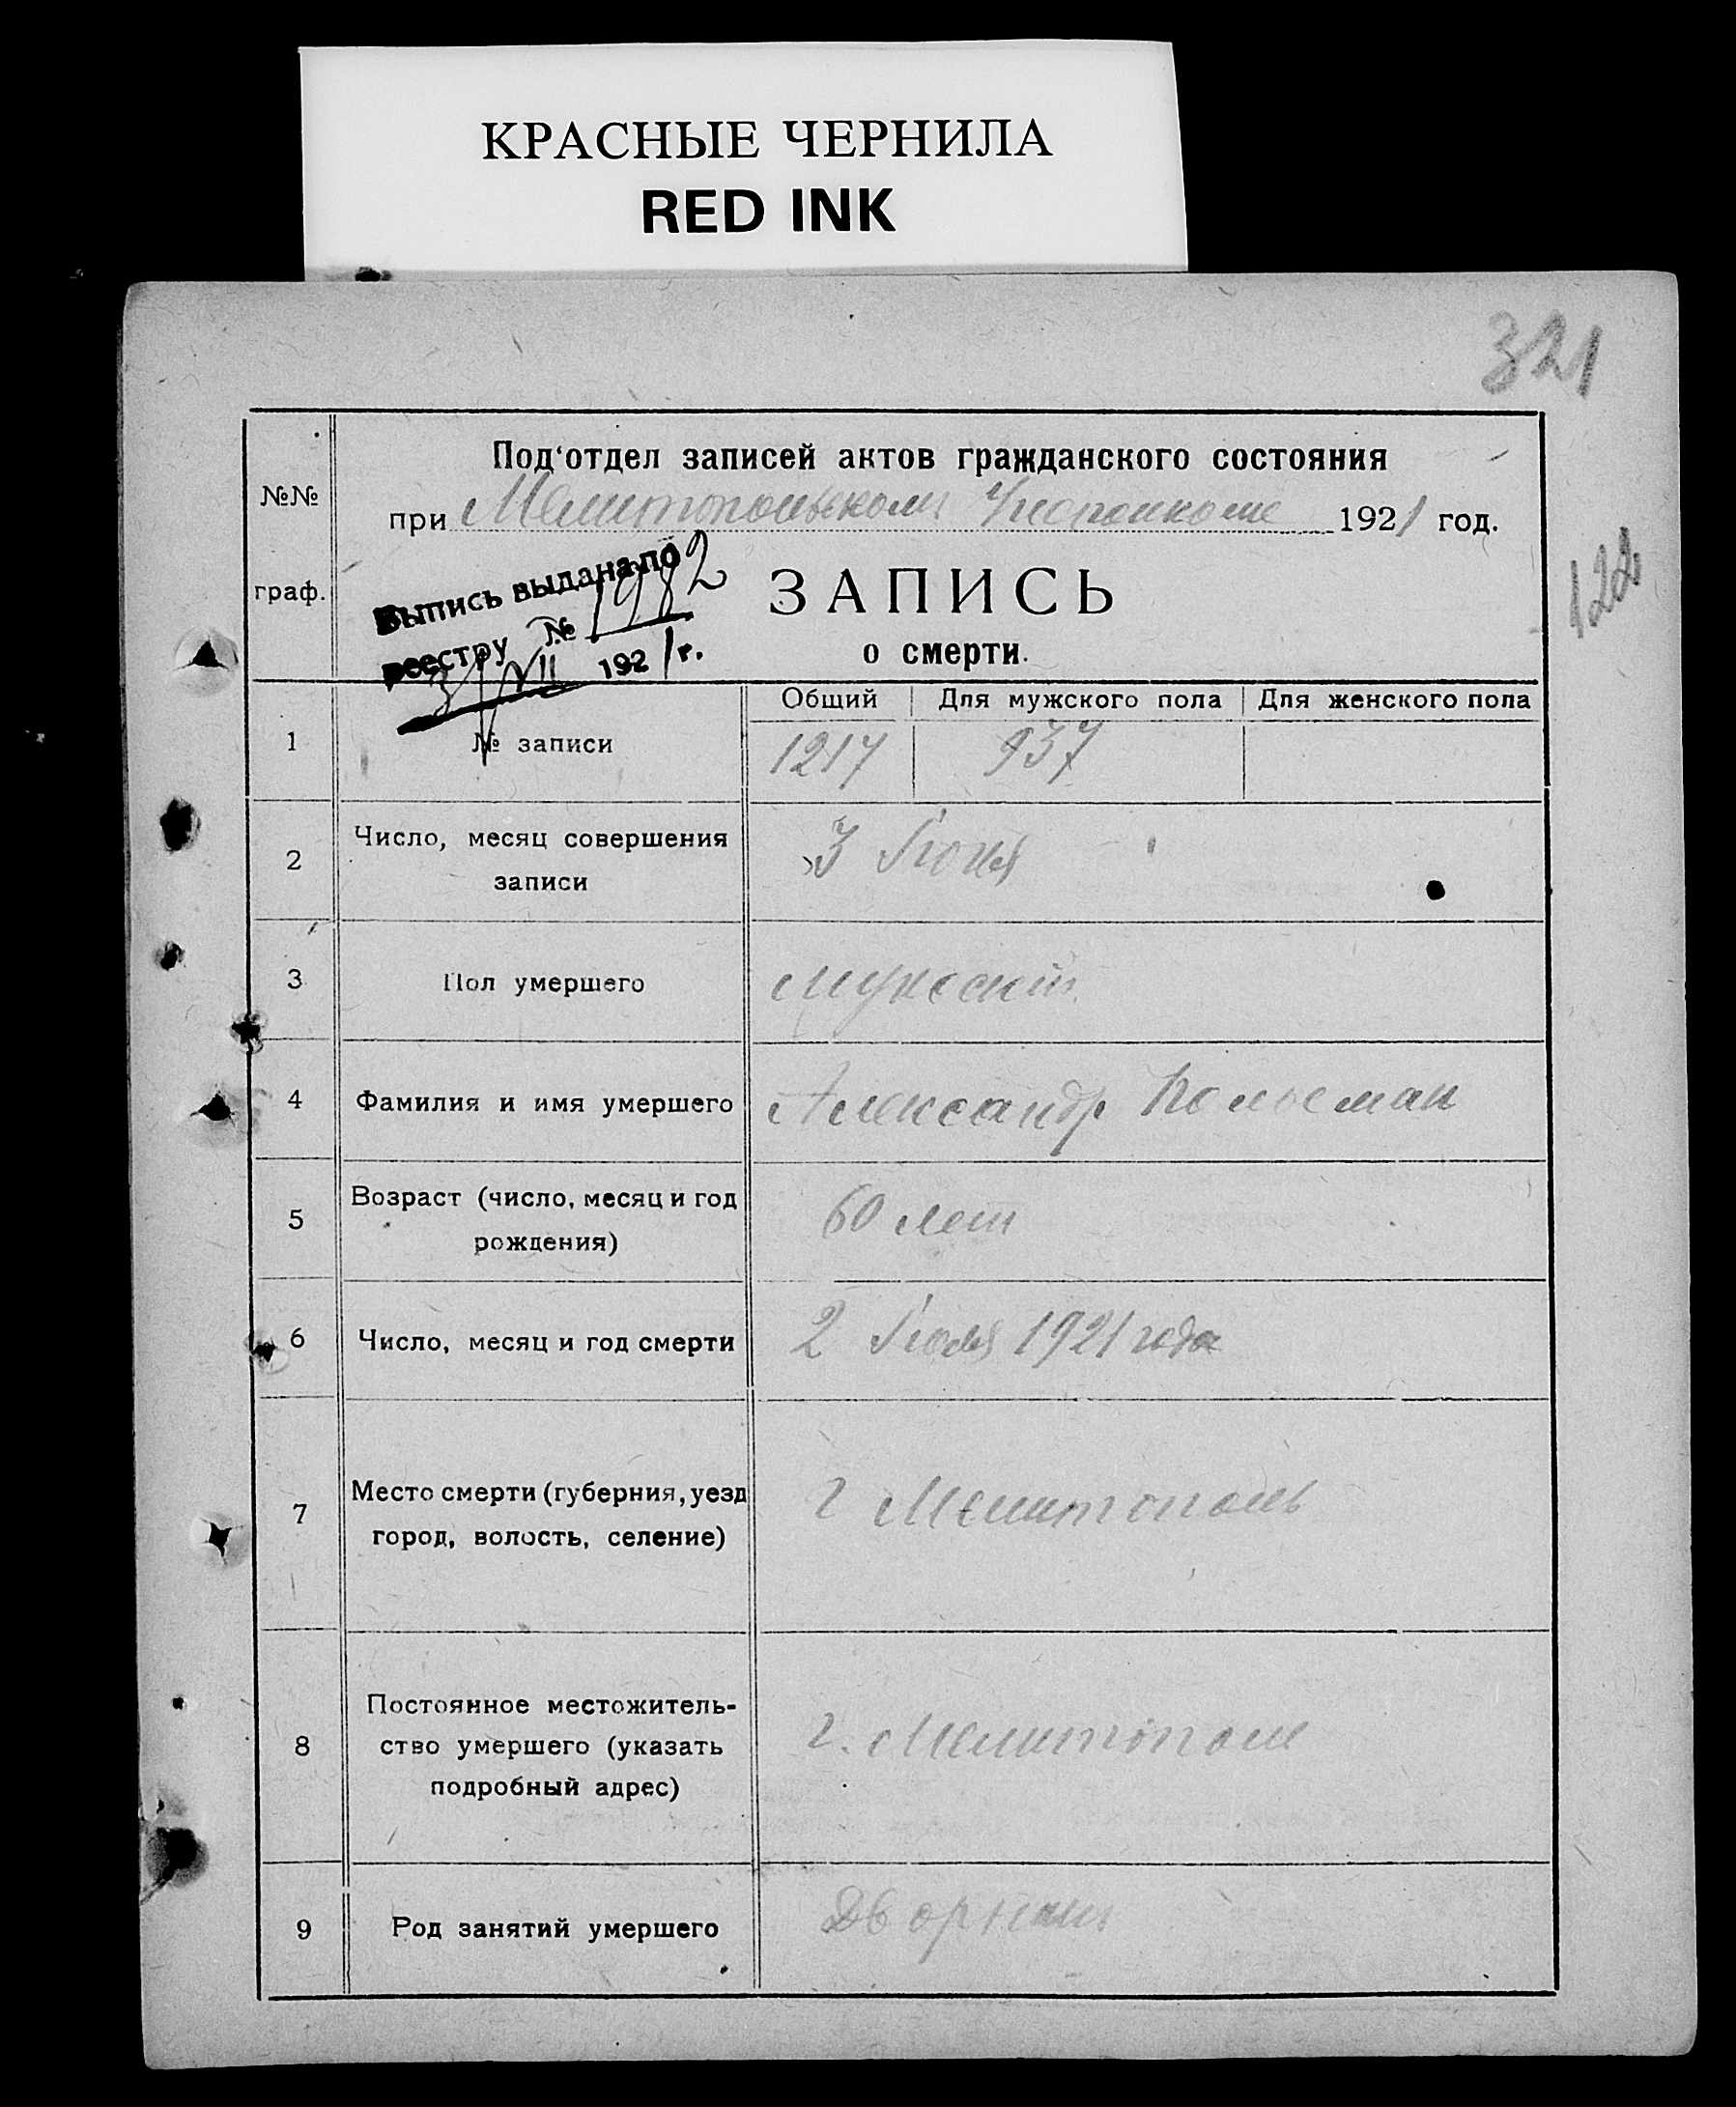 КРАСНЫЕ ЧЕРНИЛА
RED INK
321
Под‘отдел записей актов гражданского состояния
№№
при Мелитопольском 1921 год.
122
граф.
Выпись выдана по
реестру № 1982
3/VII 1921 г.
ЗАПИСЬ
о смерти.
Общий Для мужского пола Для женского пола
1 № записи 1217 937
2 Число, месяц совершения
записи
3 Июля
3 Пол умершего мужской
4 Фамилия и имя умершего Александр
5 Возраст (число, месяц и год
рождения)
60 лет
6 Число, месяц и год смерти 2 Июля 1921 года
7 Место смерти (губерния, уезд
город, волость, селение)
г Мелитополь
8 Постоянное местожитель-
ство умершего (указать
подробный адрес)
г. Мелитополь
9 Род занятий умершего